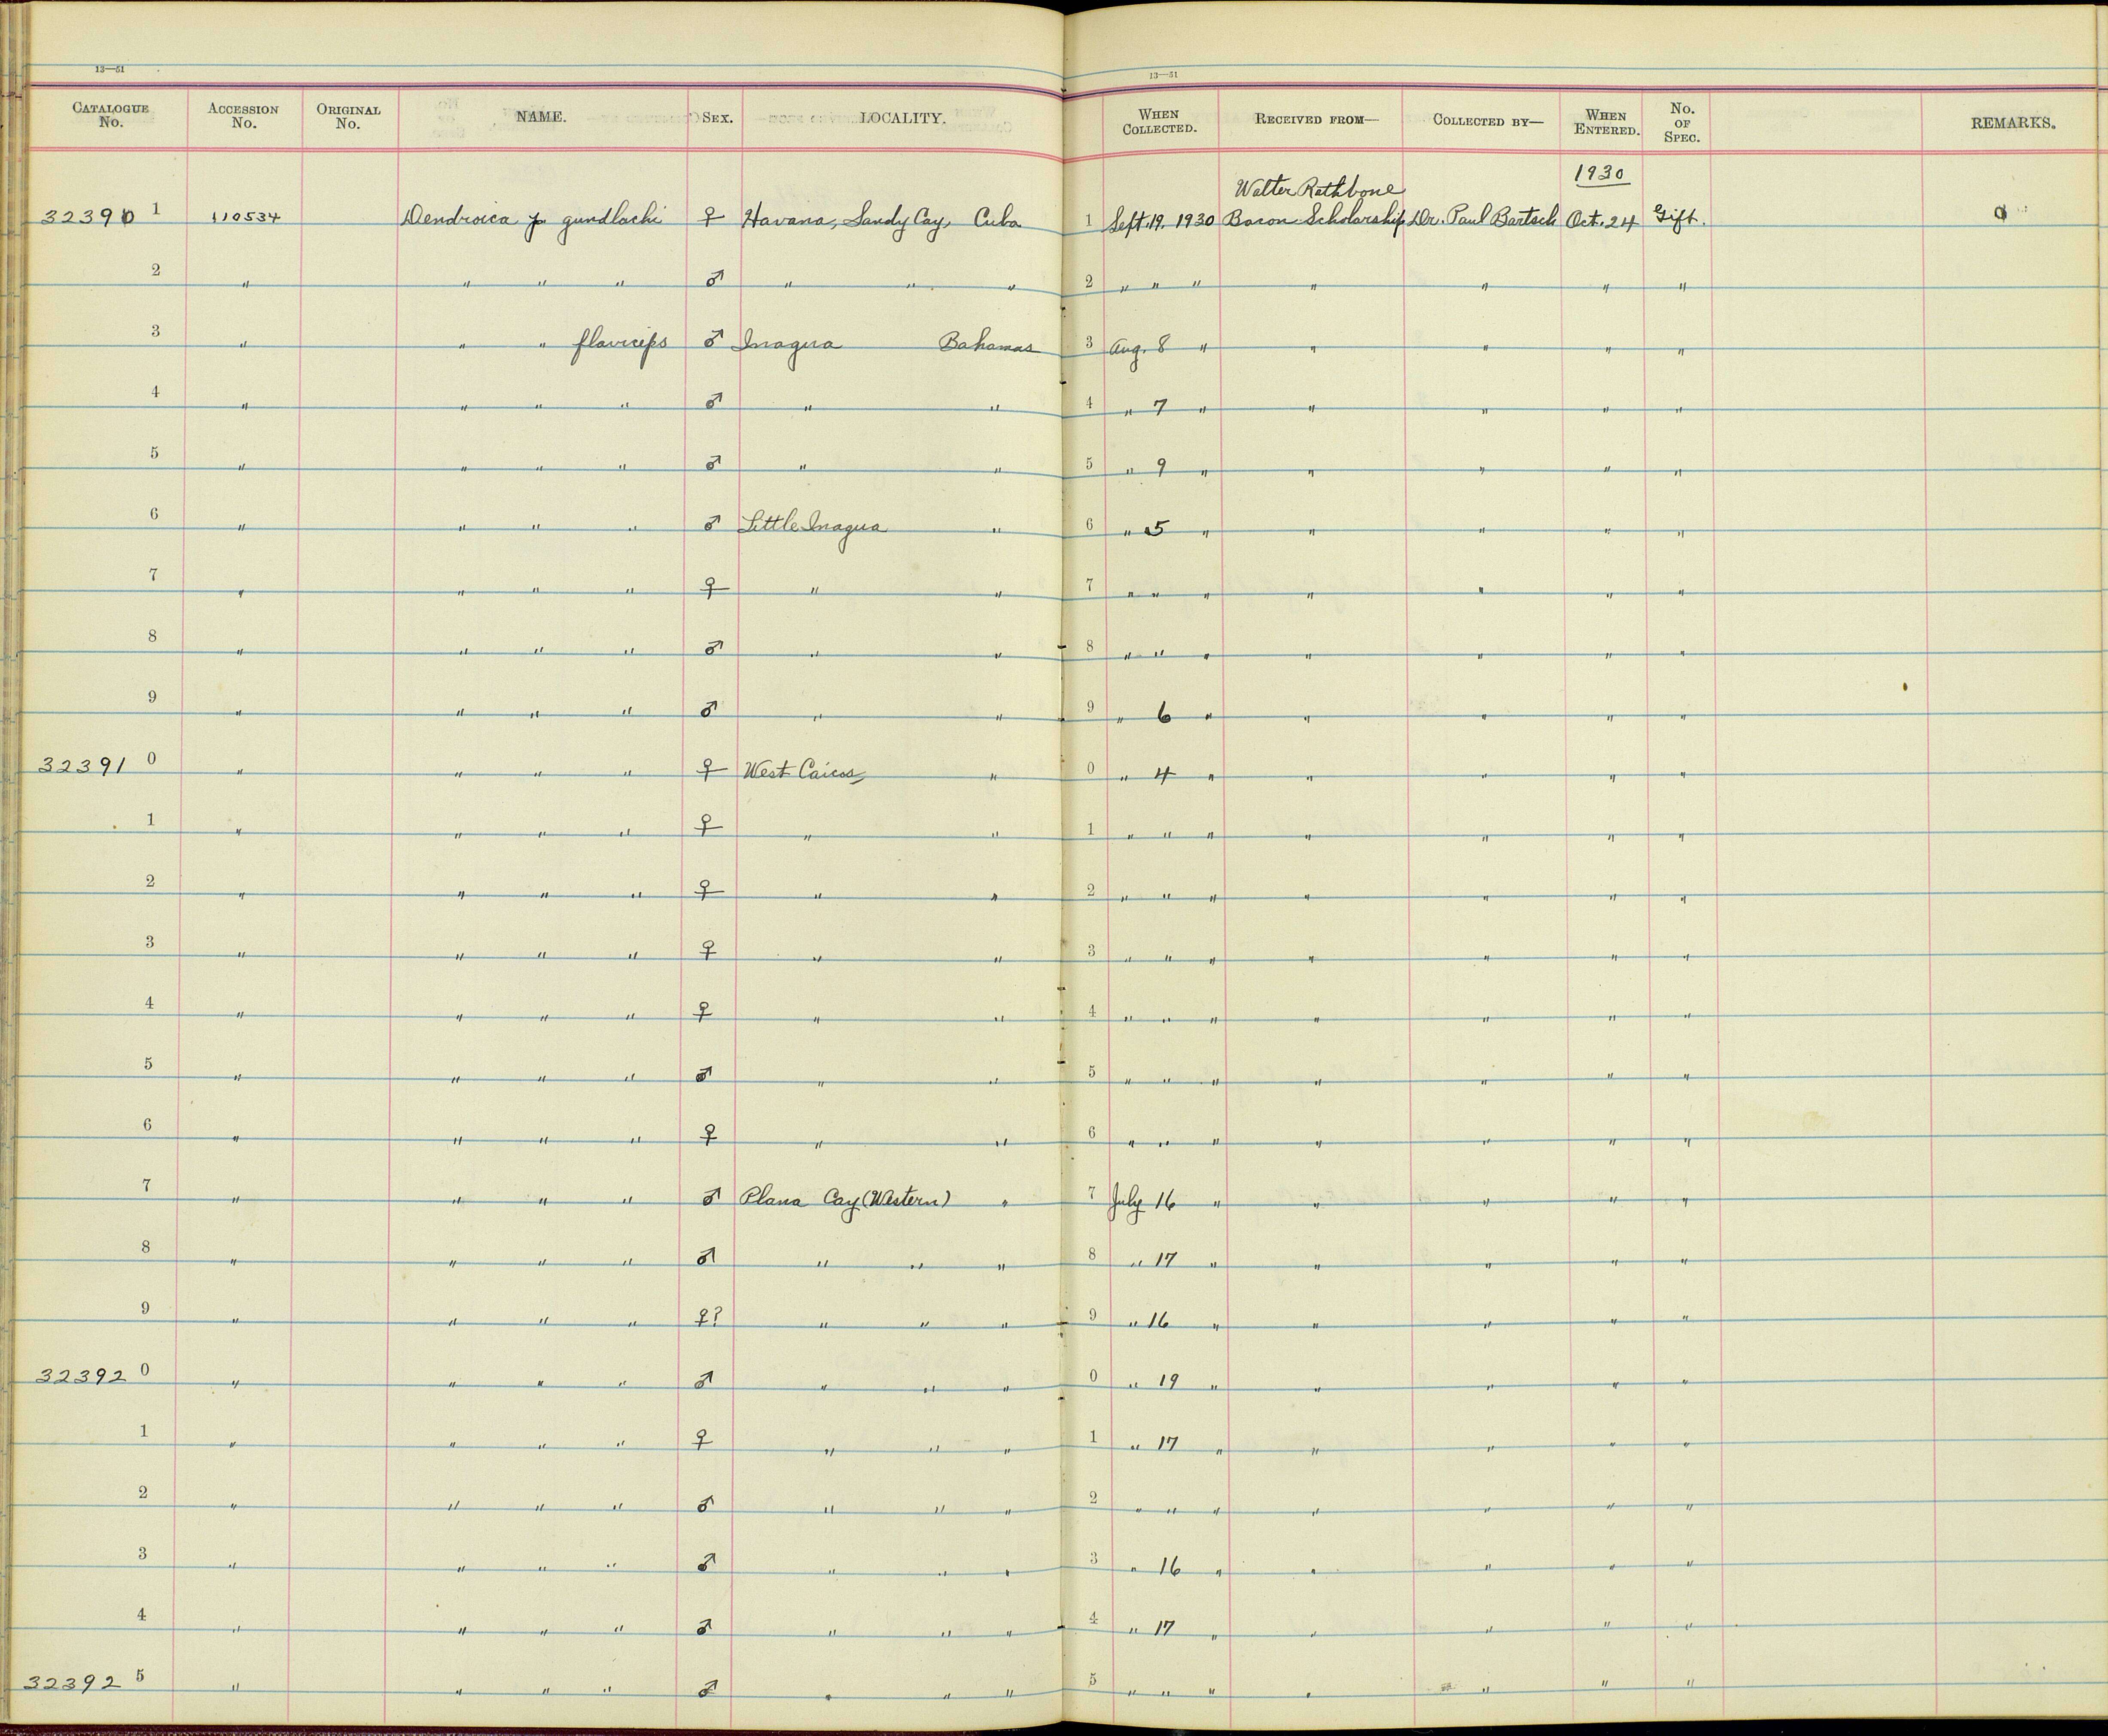 13—51 13—51
CATALOGUE No. ACCESSION No. ORIGINAL No. NAME. SEX. LOCALITY. WHEN COLLECTED. RECEIVED FROM— COLLECTED BY— WHEN ENTERED. No. OF SPEC. REMARKS.
1930
Walter Rathbone
32390 1 110534 Dendroica p gundlachi ♀ Havana, Sandy Cay, Cuba 1 Sept. 19. 1930 Bacon Scholarship Dr. Paul Bartsch Oct. 24 Gift.
2 " " " " ♂ " " " 2 " " " " " " "
3 " " " flaviceps ♂ Inagua Bahamas 3 Aug. 8 " " " " "
4 " " " " ♂ " " 4 " 7 " " " " "
5 " " " " ♂ " " 5 " 9 " " " " "
6 " " " " ♂ Little Inagua " 6 " 5 " " " " "
7 " " " " ♀ " " 7 " " " " " " "
8 " " " " ♂ " " 8 " " " " " " "
9 " " " " ♂ " " 9 " 6 " " " " "
32391 0 " " " " ♀ West Caicos " 0 " 4 " " " " "
1 " " " " ♀ " " 1 " " " " " " "
2 " " " " ♀ " " 2 " " " " " " "
3 " " " " ♀ " " 3 " " " " " " "
4 " " " " ♀ " " 4 " " " " " " "
5 " " " " ♂ " " 5 " " " " " " "
6 " " " " ♀ " " 6 " " " " " " "
7 " " " " ♂ Plana Cay (Western) " 7 July 16 " " " " "
8 " " " " ♂ " " " 8 " 17 " " " " "
9 " " " " ♀? " " " 9 " 16 " " " " "
32392 0 " " " " ♂ " " " 0 " 19 " " " " "
1 " " " " ♀ " " " 1 " 17 " " " " "
2 " " " " ♂ " " " 2 " " " " " " "
3 " " " " ♂ " " " 3 " 16 " " " " "
4 " " " " ♂ " " " 4 " 17 " " " " "
32392 5 " " " " ♂ " " " 5 " " " " " " "